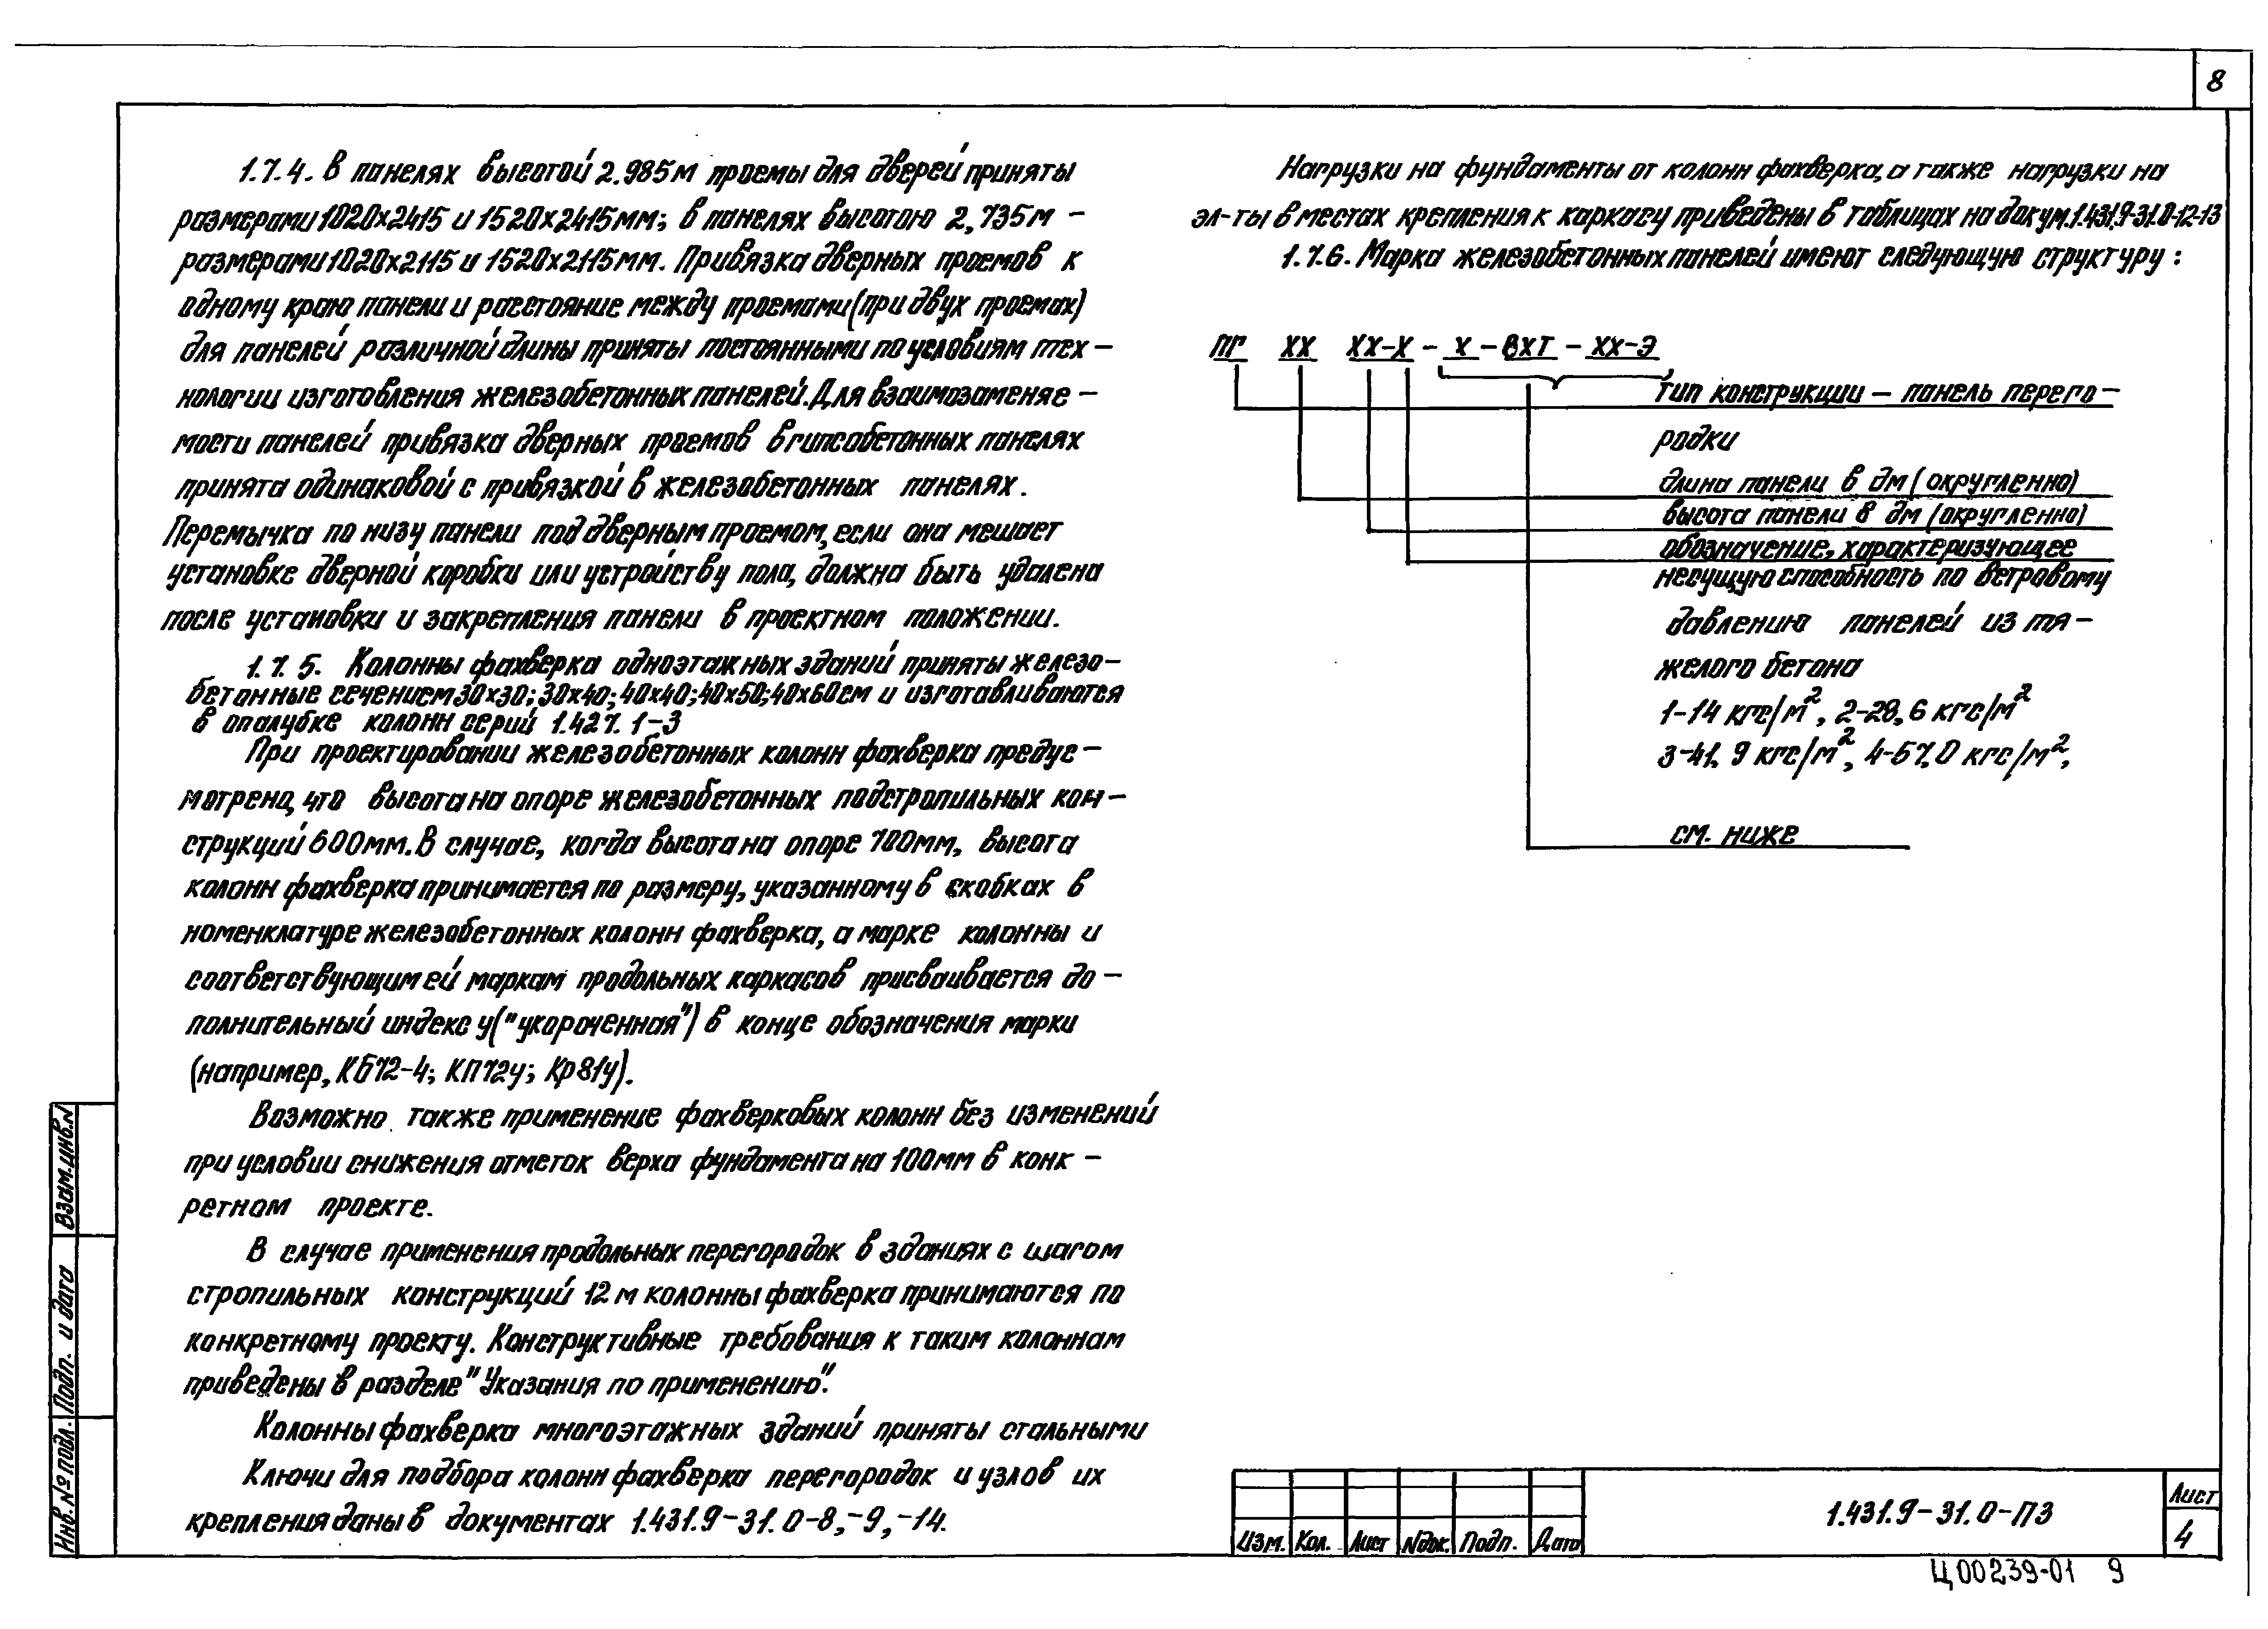 8
1.7.4. В панелях высотой 2.985м проемы для дверей приняты
размерами 1020х2415 и 1520х2415мм; в панелях высотою 2,735м –
размерами 1020х2115 и 1520х2115мм. Привязка дверных проемов к
одному краю панели и расстояние между проемами (при двух проемах)
для панелей различной длины приняты постоянными по условиям тех –
нологии изготовления железобетонных панелей. Для взаимозаменяе –
мости панелей привязка дверных проемов в гипсобетонных панелях
принята одинаковой с привязкой в железобетонных панелях.
Перемычка по низу панели под дверным проемом, если она мешает
установке дверной коробки или устройству пола, должна быть удалена
после установки и закрепления панели в проектном положении.
1.7.5. Колонны фахверка одноэтажных зданий приняты железо–
бетонные сечением 30х30; 30х40; 40х40; 40х50; 40х60см и изготавливаются
в опалубке колонн серий 1.427.1-3
При проектировании железобетонных колонн фахверка предус –
мотрено, что высота на опоре железобетонных подстропильных кон –
струкций 600мм. В случае, когда высота на опоре 700мм, высота
колонн фахверка принимается по размеру, указанному в скобках в
номенклатуре железобетонных колонн фахверка, а марке колонны и
соответствующим ей маркам продольных каркасов присваивается до –
полнительный индекс у ("укороченная") в конце обозначения марки
(например, КБ72-4; КП72у; Кр81у).
Возможно также применение фахверковых колонн без изменений
при условии снижения отметок верха фундамента на 100мм в конк –
ретном проекте.
В случае применения продольных перегородок в зданиях с шагом
стропильных конструкций 12м колонны фахверка принимаются по
конкретному проекту. Конструктивные требования к таким колоннам
приведены в разделе "Указания по применению".
Колонны фахверка многоэтажных зданий приняты стальными
Ключи для подбора колонн фахверка перегородок и узлов их
крепления даны в документах 1.431.9-31.0-8,-9,-14.
Нагрузки на фундаменты от колонн фахверка, а также нагрузки на
эл-ты в местах крепления к каркасу приведены в таблицах на докум.1.431.9-31.0-12-13
1.7.6. Марка железобетонных панелей имеют следующую структуру:
ПГ ХХ ХХ-Х – Х – ВХТ – ХХ-Э
тип конструкции – панель перего –
родки
длина панели в дм (округленно)
высота панели в дм (округленно)
обозначение, характеризующее
несущую способность по ветровому
давлению панелей из тя –
желого бетона
1-14 кгс/м², 2-28,6 кгс/м²
3-41,9 кгс/м², 4-57,0 кгс/м²,
см. ниже
Взам.инв.N
Подп. и дата
Инв. № подл.
Изм. Кол. Лист Nдок. Подп. Дата
1.431.9-31.0-ПЗ
Лист
4
Ц00239-01 9